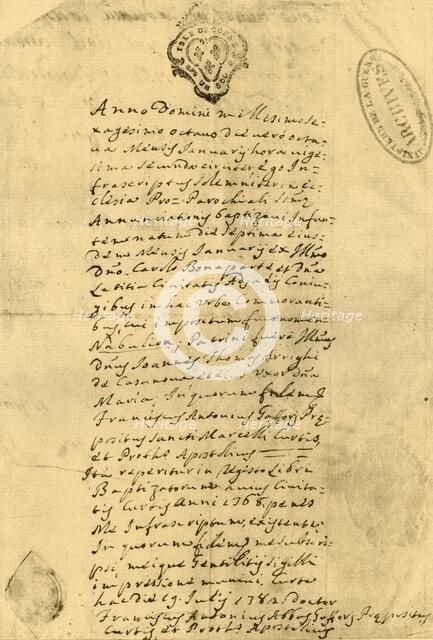 ISLE DE CORSE
MINISTÈRE DE LA GUERRE
ARCHIVES
Anno Domini Millesimo se-
xagesimo octavo die vero octa-
va Mensis Januarij hora vige-
sima secunda circiter, ego In-
frascriptus solemniter in Ec-
clesia Pro= Parochiali Smæ
Annunciationis baptizavi Infan-
tem natum die septima ejus-
dem Mensis Januarij ex Illmo
Dno. Carolo Bonaparte et Dna
Lætitia Civitatis Adjacij Conju-
gibus in hac Urbe Commoranti-
bus, cui impositum fuit nomen
Nabulion; Patrini fuere Illmus
Dnus Joannes Thomas Arrighi
de Casanova et ejus uxor Dna
Maria, In quorum fidem
Franciscus Antonius Gaffori Præ-
positus Sancti Marcelli Curtis,
et Proths Apostolicus
Ita reperitur in Registo Libri
Baptizatorum hujus Civita-
tis Curtis Anni 1768, penes
Me Infrascriptum, existente.
In quorum fidem me subscri-
psi, meique Gentilitij sigilli
impressione munivi, Curte
hac die 19. Julij 1782. Doctor
Franciscus Antonius Abbas Gaffori Præpositus
Curtis et Proths Apostolicus
Heritage
Images